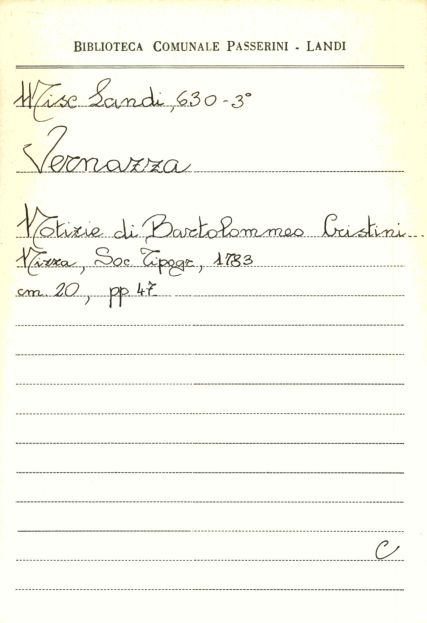 BIBLIOTECA COMUNALE PASSERINI - LANDI
Misc Landi, 630-3°
Vernazza
Notizie di Bartolommeo Cristini...
Nizza, Soc Tipogr, 1783
cm 20, pp 47
C